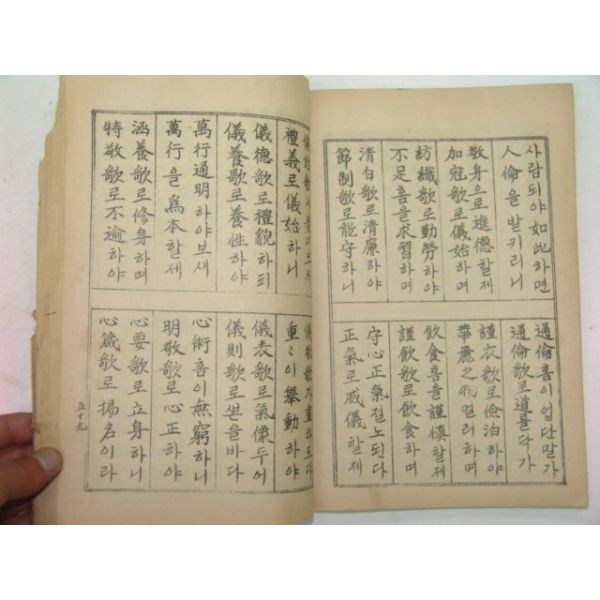 사람되야如此하면
人倫을발키리니
敬身으로進德할제
加冠歌로儀始하며
紡織歌로勤勞하야
不足喜을求習하며
清白歌로清廉하야
節制歌로能守하니
過倫喜이업단말가
通倫歌로道를다가
謹衣歌로儉泊하야
華麗之物멀리하며
飲食喜을謹愼할제
謹飲歌로飲食하며
守心正氣절노된다
正氣로威儀할제
禮義로儀始하니
儀德歌로禮貌하되
儀養歌로養性하야
萬行通明하야보새
萬行을爲本할제
涵養歌로修身하며
特敬歌로不逾하야
重〻이擧動하야
儀表歌로氣像두어
儀則歌로 바다
心術喜이無窮하니
明敬歌로心正하야
心要歌로立身하니
心箴歌로揚名이라
五十九